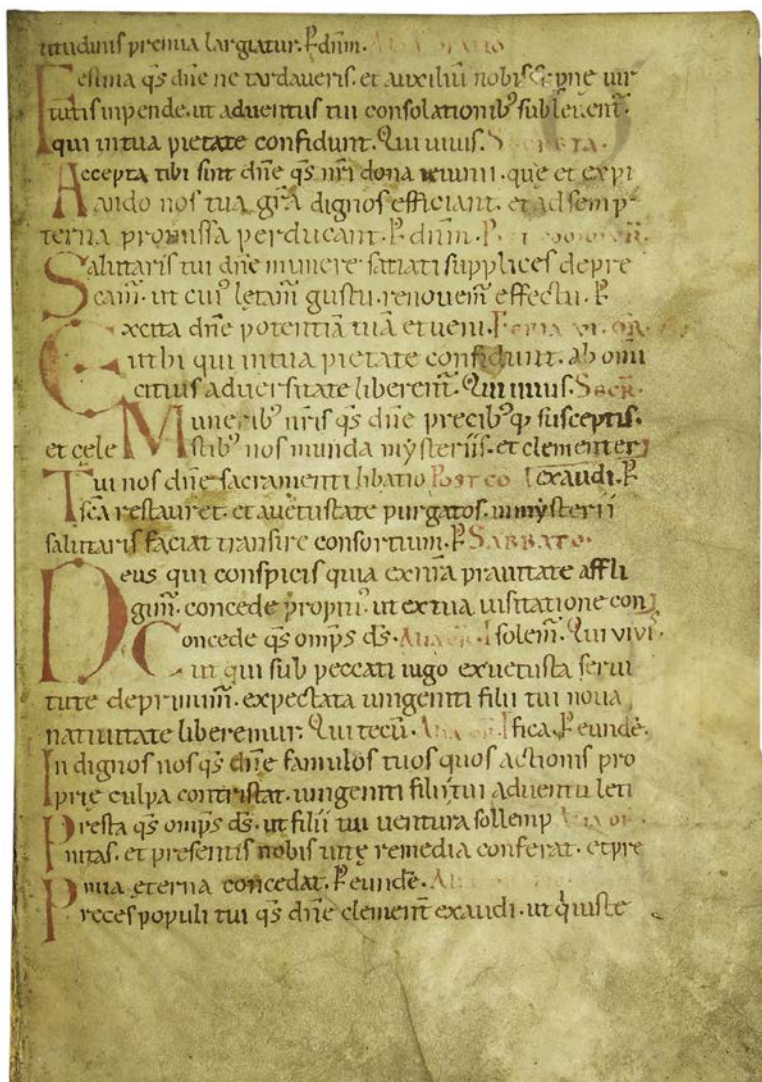 titudinis premia largiatur. P dnm. Alia oratio
Festina qs dne ne tardaveris. et auxiliu nobis supne uir
tutis inpende. ut aduentus tui consolationib' subleuent̃.
qui in tua pietate confidunt. Qui uiuis. Secreta.
Accepta tibi sint dñe qs nri dona ieiunii. que et expi
ando nos tua grã dignos efficiant. et ad semp
terna promissa perducant. P dnm.
Salutaris tui dñe munere satiati supplices depre
cam̃. ut cui' letam̃ gustu. renouem̃ effectu. P
Excita dñe potentiã tuã et ueni. Feria vi. or.
ut hi qui in tua pietate confidunt. ab omi
citius aduersitate liberent̃. Qui uiuis. Secr.
Munerib' nris qs dñe precib'q; susceptis.
et cele stib' nos munda mysteriis. et clementer
Tui nos dñe sacramenti libatio Post co exaudi. P
scã restauret. et a uetustate purgatos. in mysterii
salutaris faciat transire consortium. P Sabbato.
Deus qui conspicis quia ex nra prauitate affli
gim̃. concede propiti'. ut ex tua uisitatione con
Concede qs omps ds. Alia or. solem̃. Qui vivis
ut qui sub peccati iugo ex uetusta serui
tute deprimim̃. expectata unigeniti filii tui noua
natiuitate liberemur. Qui tecũ. Alia or. fica. P eundẽ.
Indignos nos qs dñe famulos tuos quos actionis pro
prie culpa contristat. unigeniti filii tui aduentu leti
Presta qs omps ds. ut filii tui uentura sollemp Alia or.
nitas. et presentis nobis uite remedia conferat. et pre
mia eterna concedat. P eundẽ.
Preces populi tui qs dñe clement̃ exaudi. ut q' iuste